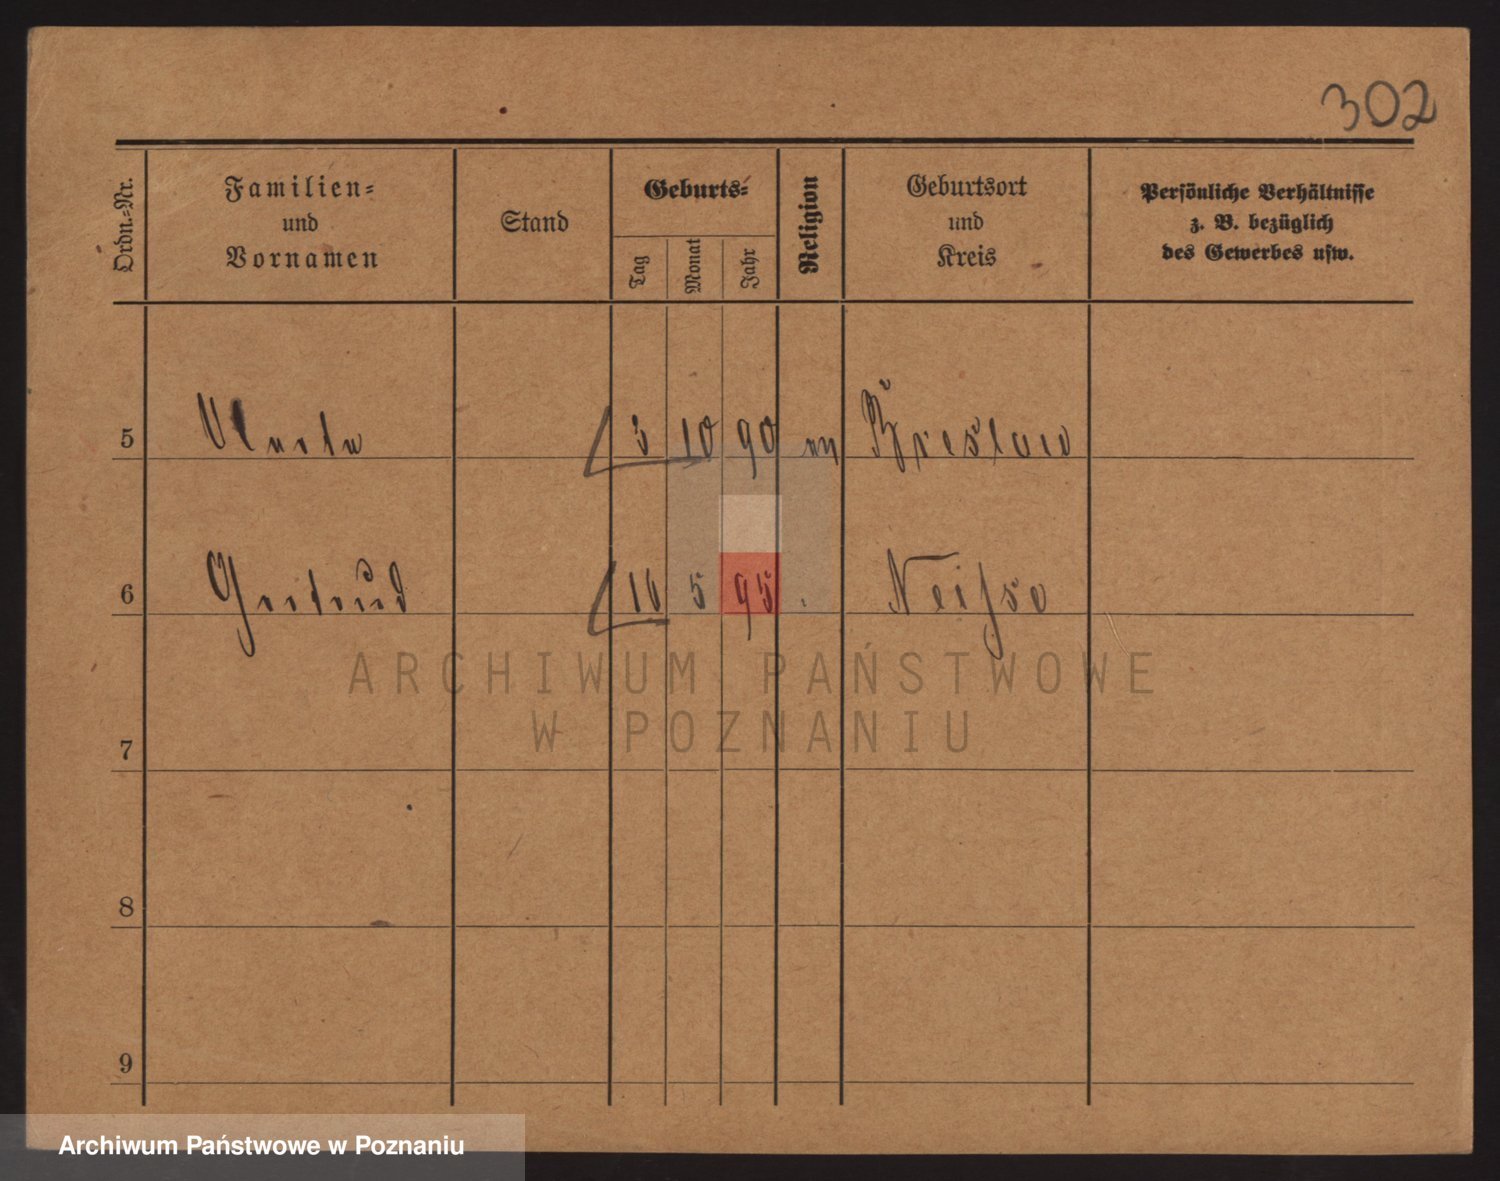 302
Ordn.-Nr.
Familien-
und
Vornamen
Stand
Geburts-
Tag
Monat
Jahr
Religion
Geburtsort
und
Kreis
Persönliche Verhältnisse
z. B. bezüglich
des Gewerbes usw.
5 3 10 90 Breslau
6 Gertrud 5 95 Neisse
7
8
9
ARCHIWUM PAŃSTWOWE
W POZNANIU
Archiwum Państwowe w Poznaniu